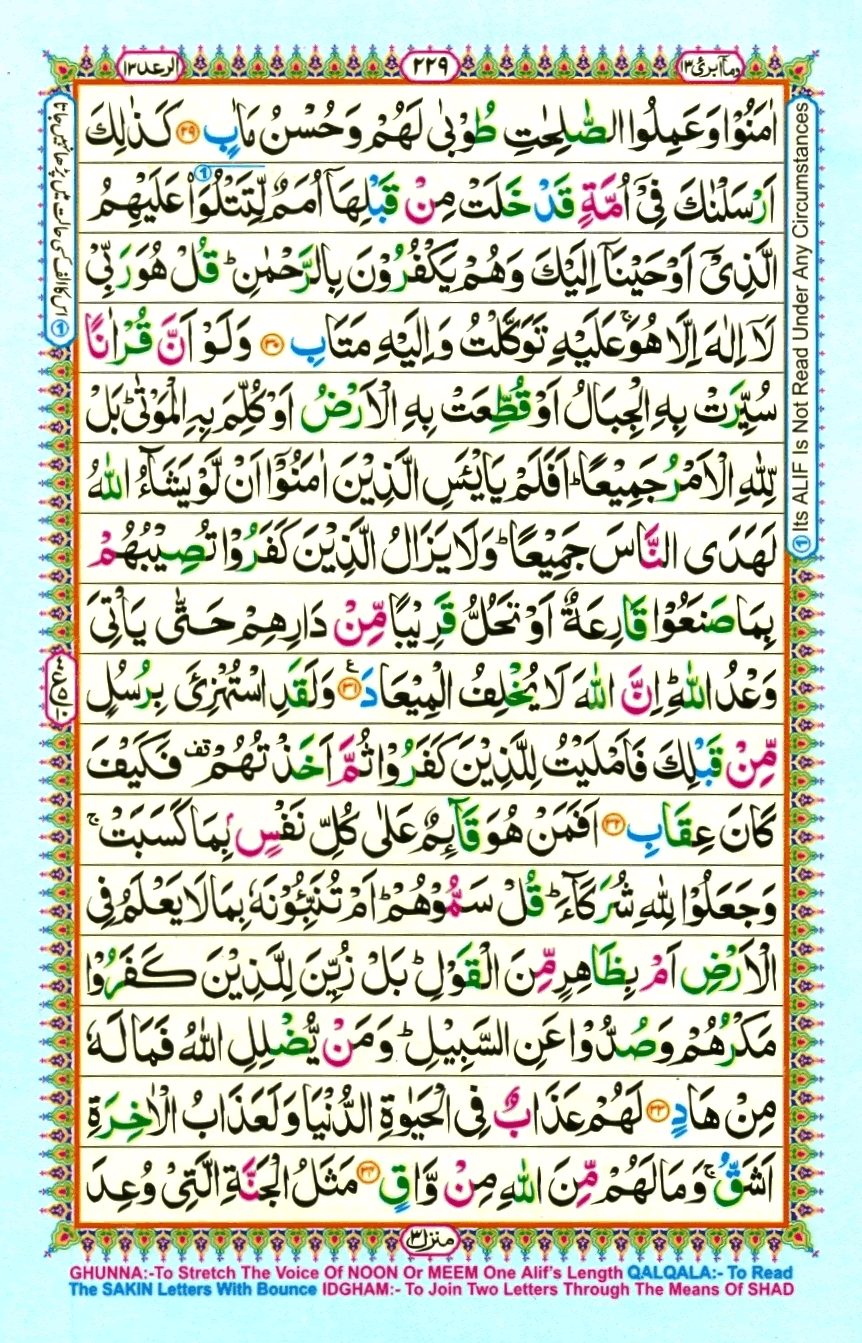 وماۤ ابرئ ١٣
٢٢٩
الرعد ١٣
اٰمَنُوْا وَعَمِلُوا الصّٰلِحٰتِ طُوْبٰى لَهُمْ وَحُسْنُ مَاٰبٍ ﴿٢٩﴾ كَذٰلِكَ
اَرْسَلْنٰكَ فِیْۤ اُمَّةٍ قَدْ خَلَتْ مِنْ قَبْلِهَاۤ اُمَمٌ لِّتَتْلُوَا۟ ① عَلَیْهِمُ
الَّذِیْۤ اَوْحَیْنَاۤ اِلَیْكَ وَهُمْ یَكْفُرُوْنَ بِالرَّحْمٰنِ ؕ قُلْ هُوَ رَبِّیْ
لَاۤ اِلٰهَ اِلَّا هُوَ ۚ عَلَیْهِ تَوَكَّلْتُ وَاِلَیْهِ مَتَابِ ﴿٣٠﴾ وَلَوْ اَنَّ قُرْاٰنًا
سُیِّرَتْ بِهِ الْجِبَالُ اَوْ قُطِّعَتْ بِهِ الْاَرْضُ اَوْ كُلِّمَ بِهِ الْمَوْتٰى ؕ بَلْ
لِّلّٰهِ الْاَمْرُ جَمِیْعًا ؕ اَفَلَمْ یَایْـَٔسِ الَّذِیْنَ اٰمَنُوْۤا اَنْ لَّوْ یَشَآءُ اللّٰهُ
لَهَدَى النَّاسَ جَمِیْعًا ؕ وَلَا یَزَالُ الَّذِیْنَ كَفَرُوْا تُصِیْبُهُمْ
بِمَا صَنَعُوْا قَارِعَةٌ اَوْ تَحُلُّ قَرِیْبًا مِّنْ دَارِهِمْ حَتّٰى یَاْتِیَ
وَعْدُ اللّٰهِ ؕ اِنَّ اللّٰهَ لَا یُخْلِفُ الْمِیْعَادَ ﴿٣١﴾ ع وَلَقَدِ اسْتُهْزِئَ بِرُسُلٍ
مِّنْ قَبْلِكَ فَاَمْلَیْتُ لِلَّذِیْنَ كَفَرُوْا ثُمَّ اَخَذْتُهُمْ قف فَكَیْفَ
كَانَ عِقَابِ ﴿٣٢﴾ اَفَمَنْ هُوَ قَآئِمٌ عَلٰى كُلِّ نَفْسٍۭ بِمَا كَسَبَتْ ۚ
وَجَعَلُوْا لِلّٰهِ شُرَكَآءَ ؕ قُلْ سَمُّوْهُمْ ؕ اَمْ تُنَبِّـُٔوْنَهٗ بِمَا لَا یَعْلَمُ فِی
الْاَرْضِ اَمْ بِظَاهِرٍ مِّنَ الْقَوْلِ ؕ بَلْ زُیِّنَ لِلَّذِیْنَ كَفَرُوْا
مَكْرُهُمْ وَصُدُّوْا عَنِ السَّبِیْلِ ؕ وَمَنْ یُّضْلِلِ اللّٰهُ فَمَا لَهٗ
مِنْ هَادٍ ﴿٣٣﴾ لَهُمْ عَذَابٌ فِی الْحَیٰوةِ الدُّنْیَا وَلَعَذَابُ الْاٰخِرَةِ
اَشَقُّ ۚ وَمَا لَهُمْ مِّنَ اللّٰهِ مِنْ وَّاقٍ ﴿٣٤﴾ مَثَلُ الْجَنَّةِ الَّتِیْ وُعِدَ
① Its ALIF Is Not Read Under Any Circumstances
① اس کا الف کسی حالت میں پڑھا نہیں جاتا
منزل ٣
GHUNNA:-To Stretch The Voice Of NOON Or MEEM One Alif's Length QALQALA:- To Read
The SAKIN Letters With Bounce IDGHAM:- To Join Two Letters Through The Means Of SHAD